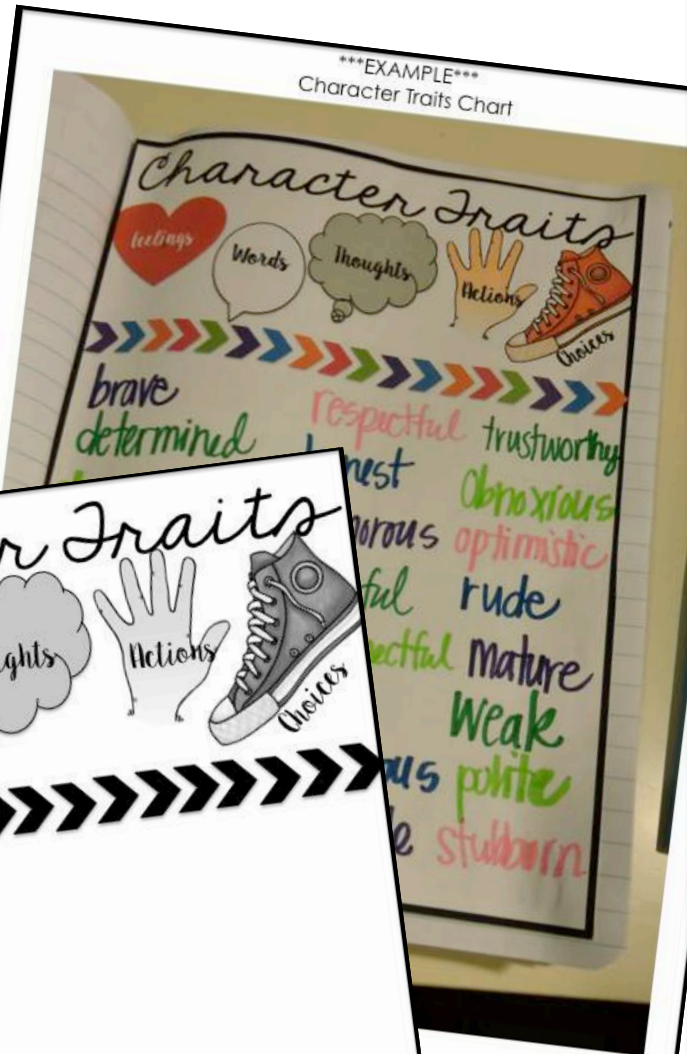 ***EXAMPLE***
Character Traits Chart
Character Traits
feelings
Words
Thoughts
Actions
Choices
brave
respectful
trustworthy
determined
obnoxious
optimistic
rude
mature
weak
polite
stubborn
Traits
Actions
Choices